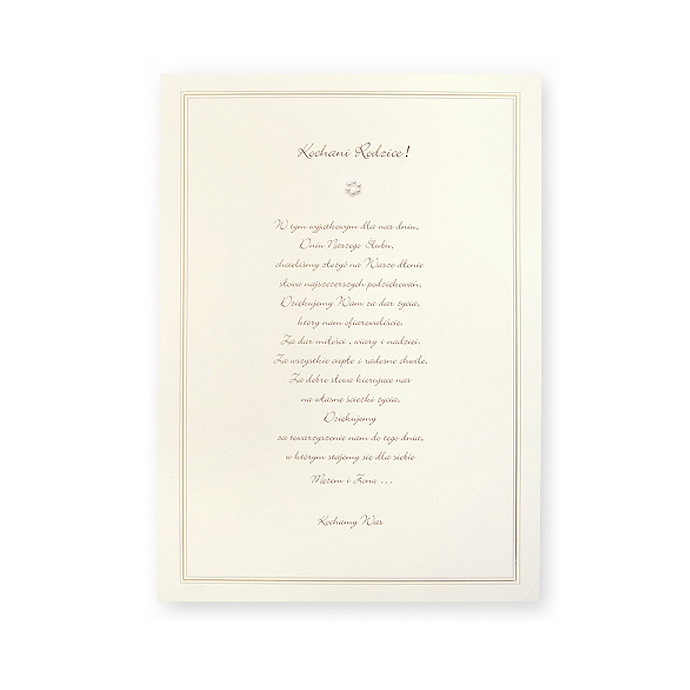 Kochani Rodzice!
W tym wyjątkowym dla nas dniu,
Dniu Naszego Ślubu,
chcieliśmy złożyć na Wasze dłonie
słowa najszczerszych podziękowań.
Dziękujemy Wam za dar życia,
który nam ofiarowaliście.
Za dar miłości, wiary i nadziei.
Za wszystkie ciepłe i radosne chwile,
Za dobre słowa kierujące nas
na własne ścieżki życia.
Dziękujemy
za towarzyszenie nam do tego dnia,
w którym stajemy się dla siebie
Mężem i Żoną ...
Kochamy Was